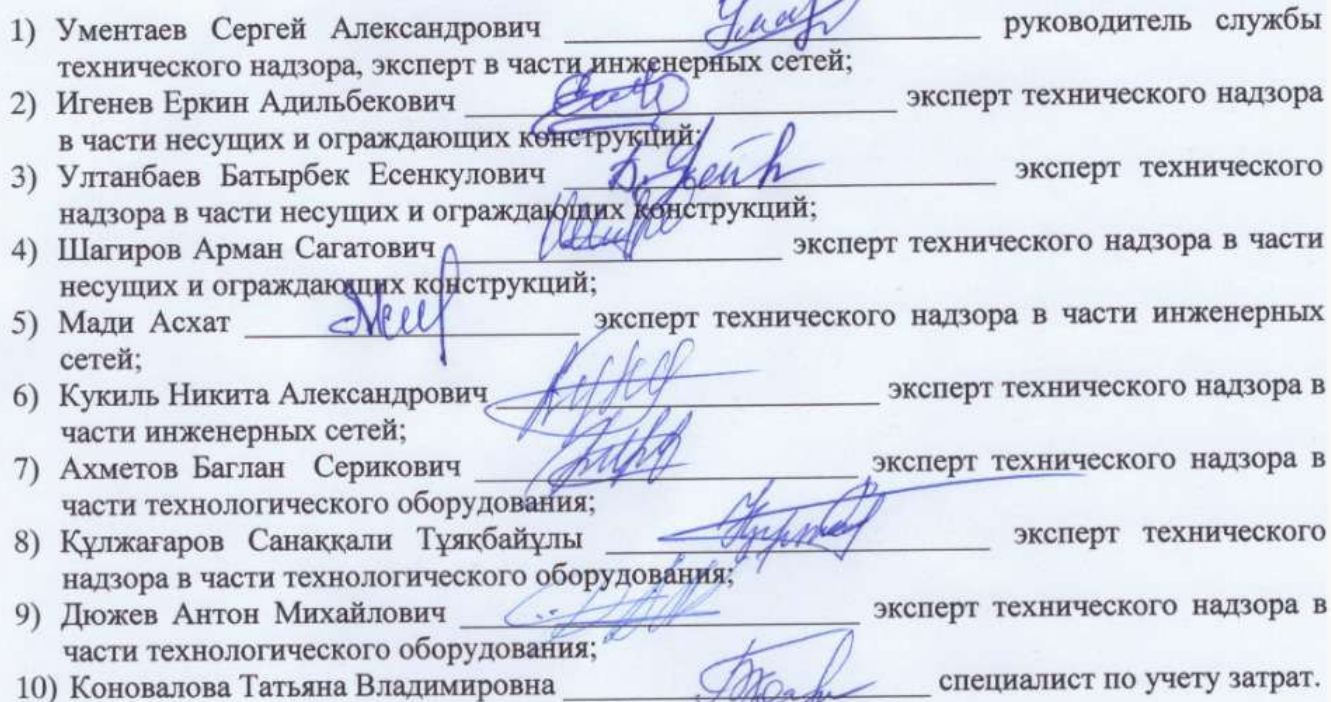 1) Ументаев Сергей Александрович руководитель службы
технического надзора, эксперт в части инженерных сетей;
2) Игенев Еркин Адильбекович эксперт технического надзора
в части несущих и ограждающих конструкций;
3) Ултанбаев Батырбек Есенкулович эксперт технического
надзора в части несущих и ограждающих конструкций;
4) Шагиров Арман Сагатович эксперт технического надзора в части
несущих и ограждающих конструкций;
5) Мади Асхат эксперт технического надзора в части инженерных
сетей;
6) Кукиль Никита Александрович эксперт технического надзора в
части инженерных сетей;
7) Ахметов Баглан Серикович эксперт технического надзора в
части технологического оборудования;
8) Құлжағаров Санаққали Тұяқбайұлы эксперт технического
надзора в части технологического оборудования;
9) Дюжев Антон Михайлович эксперт технического надзора в
части технологического оборудования;
10) Коновалова Татьяна Владимировна специалист по учету затрат.